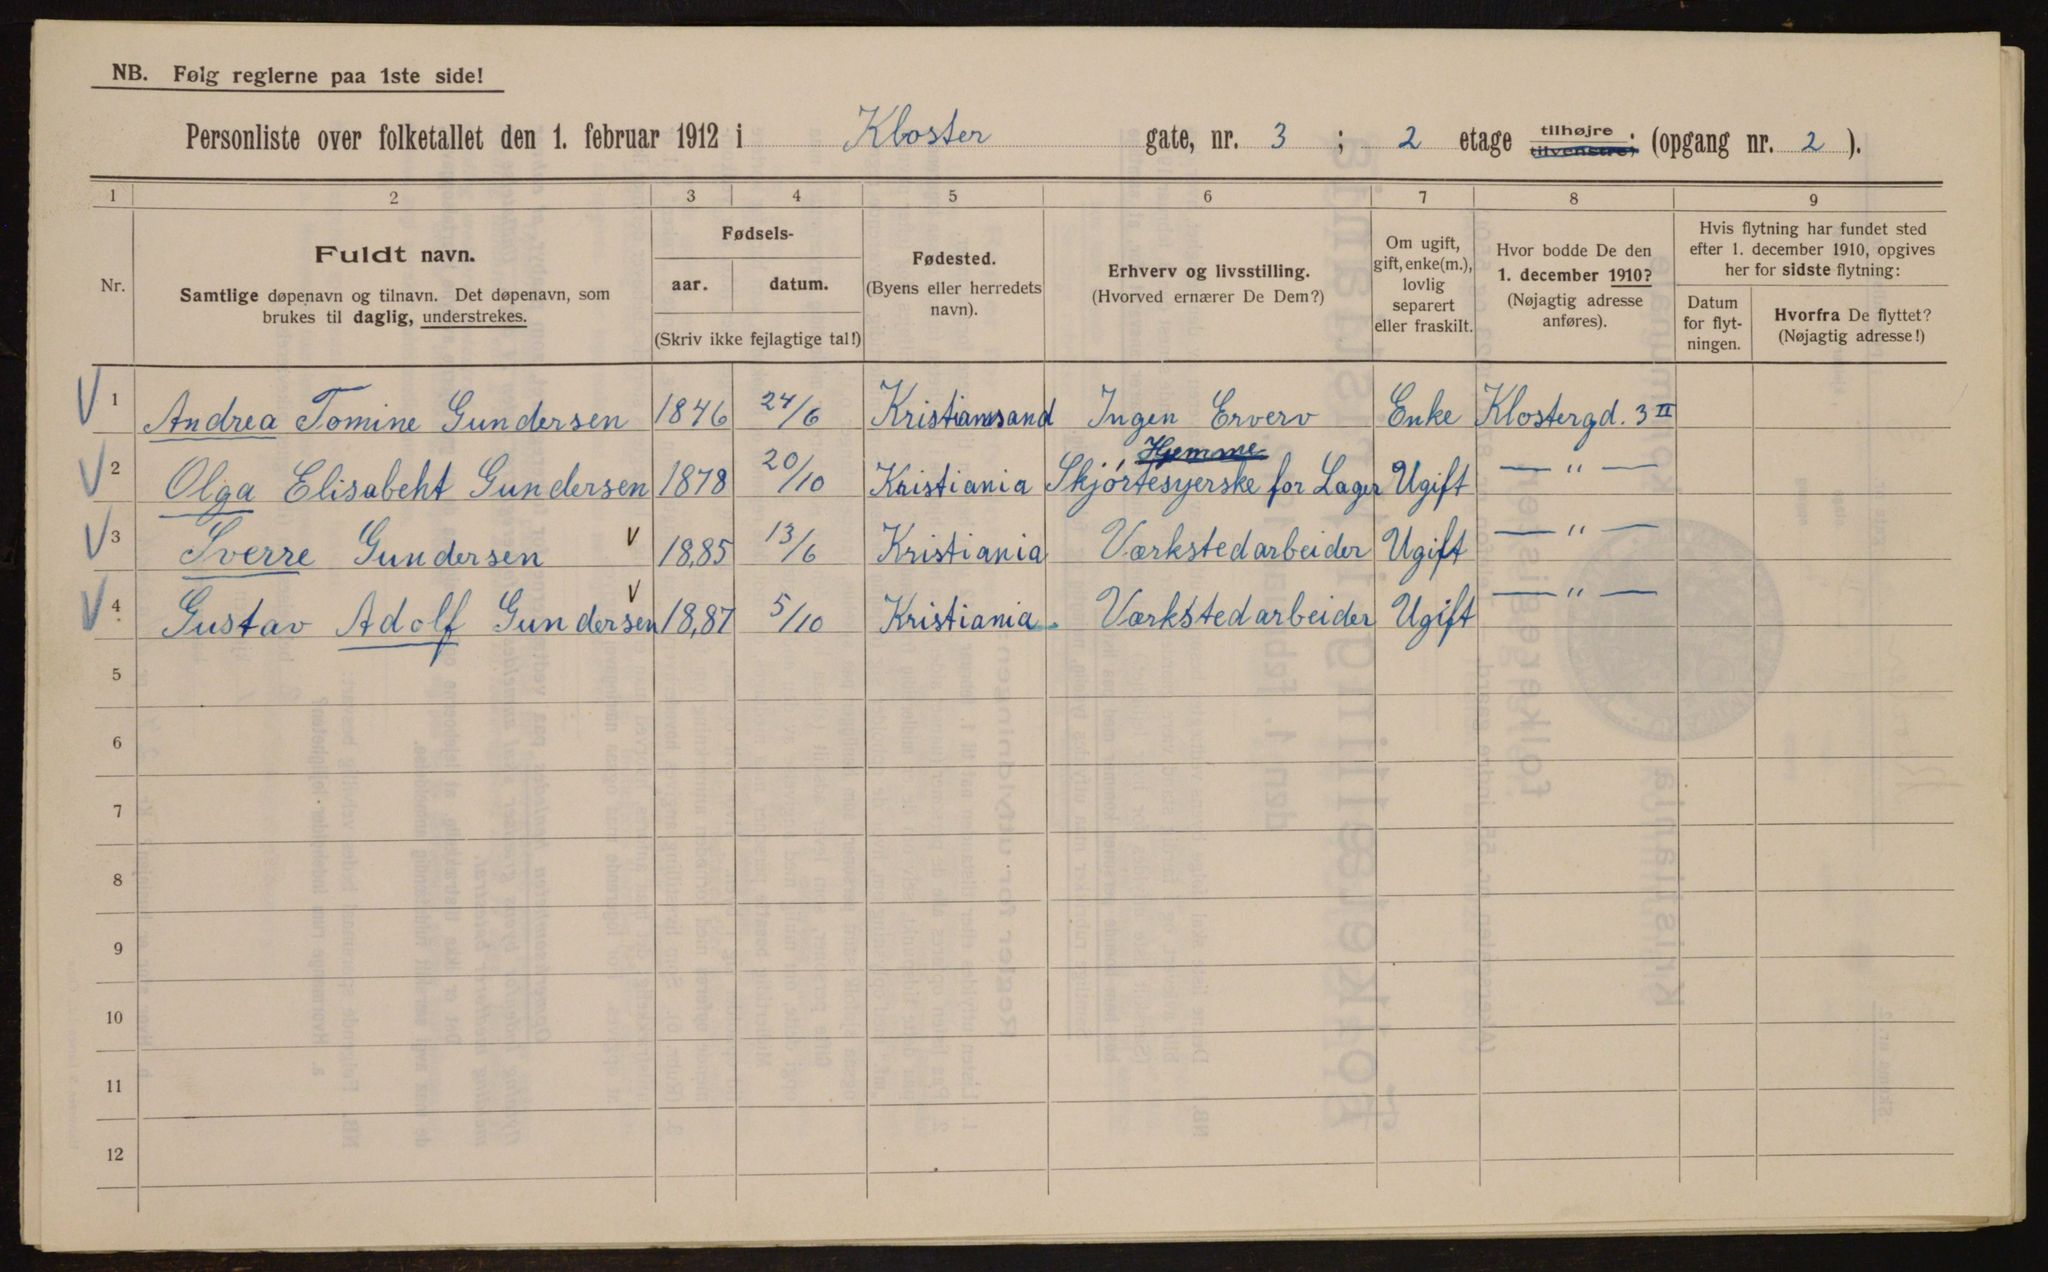 NB. Følg reglerne paa 1ste side!
Personliste over folketallet den 1. februar 1912 i Kloster gate, nr. 3 ; 2 etage tilhøjre tilvenstre; (opgang nr. 2 ).
1 2 3 4 5 6 7 8 9
Nr.
Fuldt navn.
Samtlige døpenavn og tilnavn. Det døpenavn, som
brukes til daglig, understrekes.
Fødsels-
aar. datum.
(Skriv ikke fejlagtige tal!)
Fødested.
(Byens eller herredets
navn).
Erhverv og livsstilling.
(Hvorved ernærer De Dem?)
Om ugift,
gift, enke(m.),
lovlig
separert
eller fraskilt.
Hvor bodde De den
1. december 1910?
(Nøjagtig adresse
anføres).
Hvis flytning har fundet sted
efter 1. december 1910, opgives
her for sidste flytning:
Datum
for flyt-
ningen.
Hvorfra De flyttet?
(Nøjagtig adresse!)
V 1 Andrea Tomine Gundersen 1846 24/6 Kristiansand Ingen Erverv Enke Klostergd. 3 II
Hjemme
V 2 Olga Elisabeht Gundersen 1878 20/10 Kristiania Skjórtesyerske for Lager Ugift — " —
V 3 Sverre Gundersen v 18,85 13/6 Kristiania Værkstedarbeider Ugift — " —
V 4 Gustav Adolf Gundersen v 18,87 5/10 Kristiania. Værkstedarbeider Ugift — " —
5
6
7
8
9
10
11
12